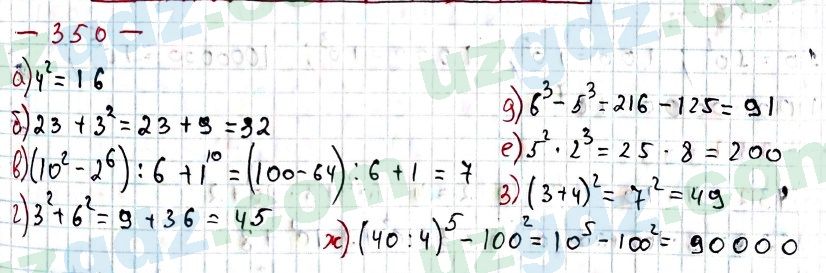 - 350 -
а) 4² = 16
б) 23 + 3² = 23 + 9 = 32
в) (10² - 2⁶) : 6 + 1¹⁰ = (100 - 64) : 6 + 1 = 7
г) 3² + 6² = 9 + 36 = 45
д) 6³ - 5³ = 216 - 125 = 91
е) 5² · 2³ = 25 · 8 = 200
з) (3+4)² = 7² = 49
ж) (40 : 4)⁵ - 100² = 10⁵ - 100² = 90000
uzgdz.com